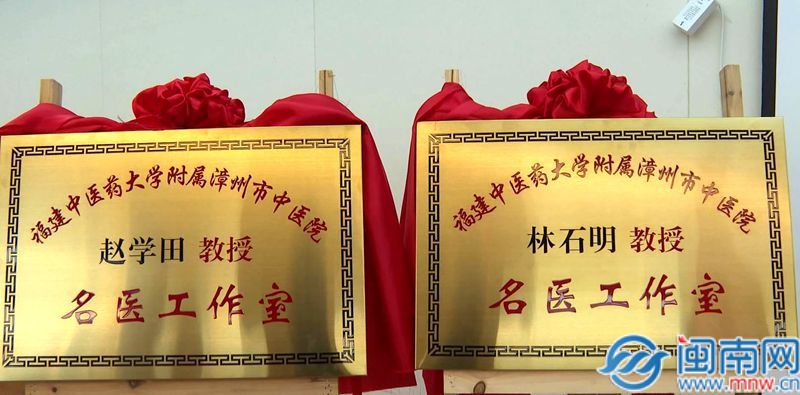 福建中医药大学附属漳州市中医院
赵学田 教授
名医工作室
福建中医药大学附属漳州市中医院
林石明 教授
名医工作室
闽南网
www.mnw.cn